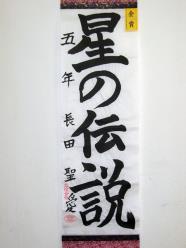 金賞
星の伝説
五年 長田 聖愛